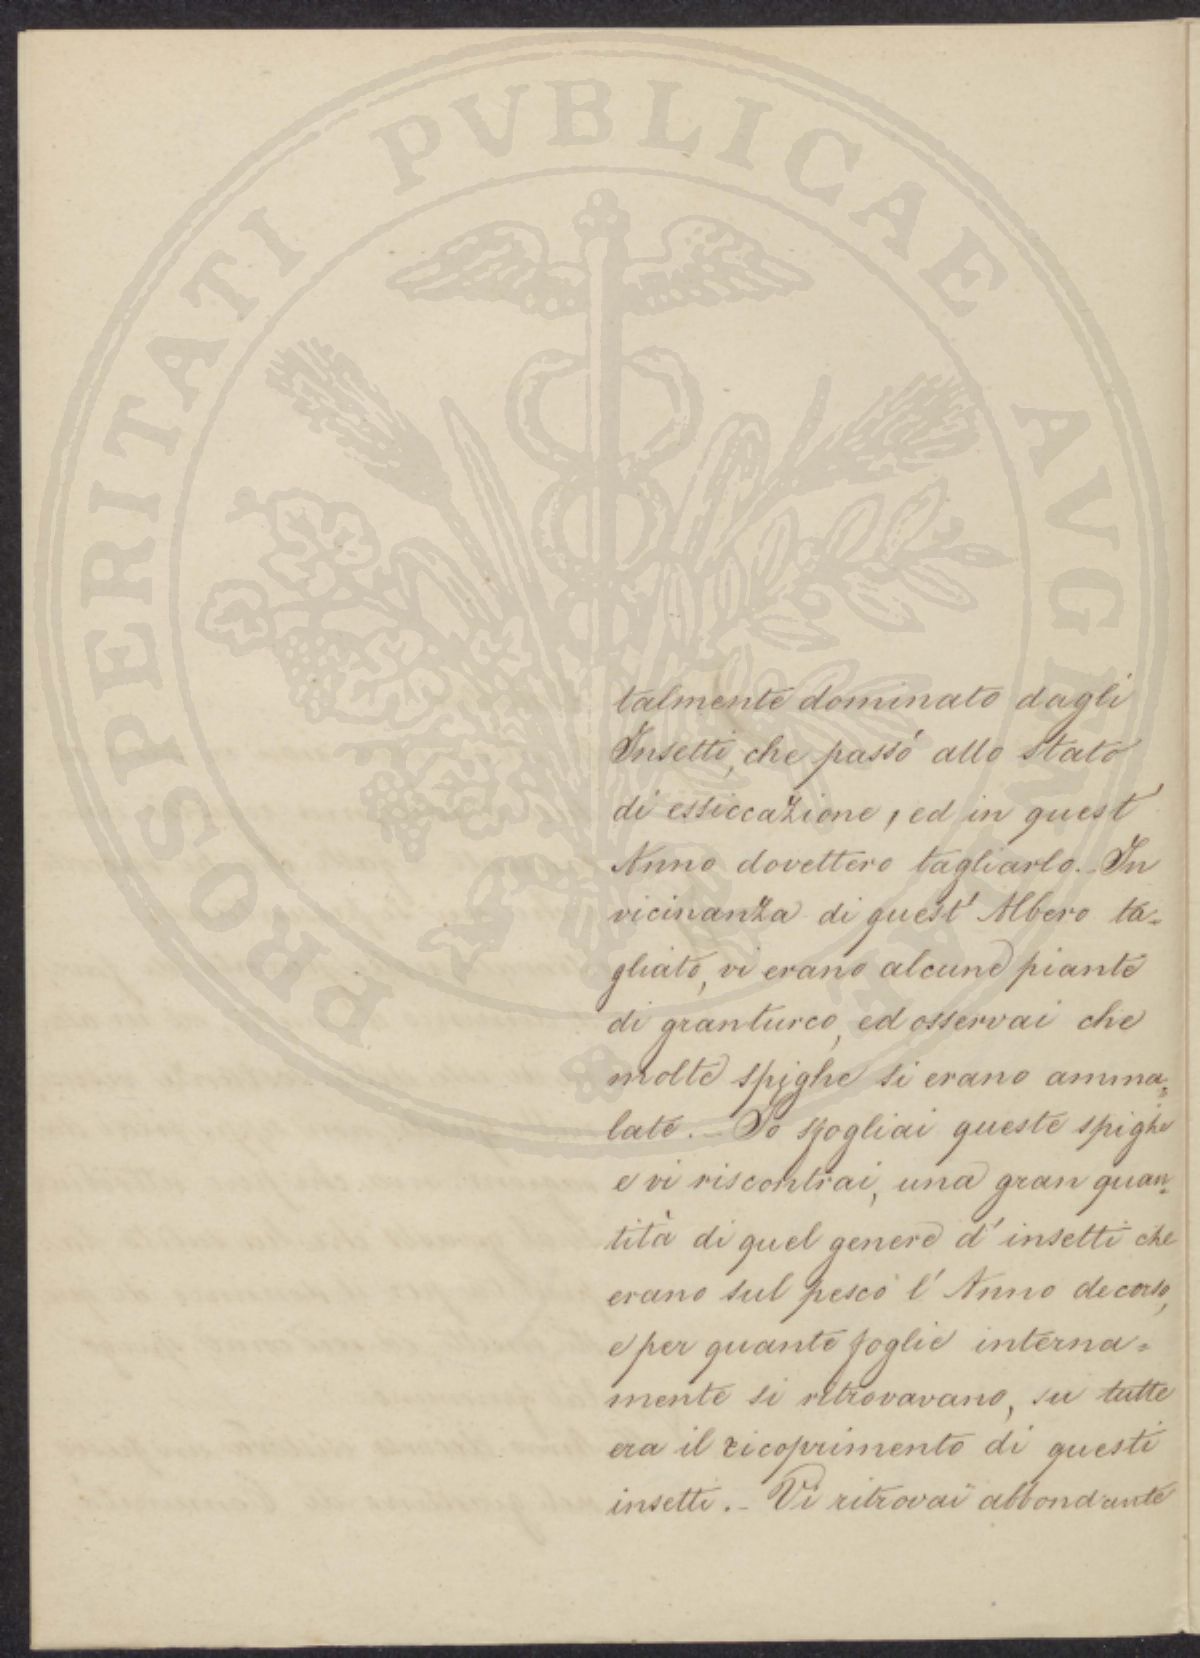 PROSPERITATI PVBLICAE AVGENDAE
talmente dominato dagli
Insetti, che passò allo stato
di essiccazione, ed in quest'
Anno dovettero tagliarlo. - In
vicinanza di quest' Albero ta=
gliato, vi erano alcune piante
di granturco, ed osservai che
molte spighe si erano amma=
late. - Io sfogliai queste spighe
e vi riscontrai, una gran quan=
tità di quel genere d' insetti che
erano sul pesco l' Anno decorso,
e per quante foglie interna=
mente si ritrovavano, su tutte
era il ricoprimento di questi
insetti. - Vi ritrovai abbondante